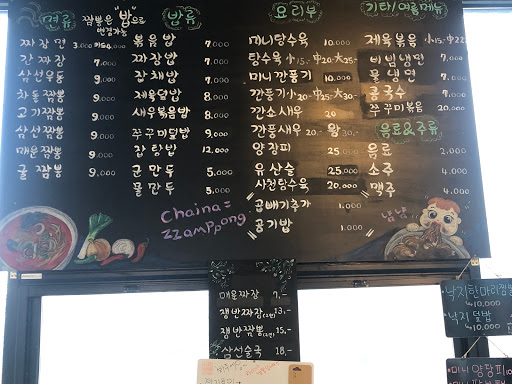 면류
짬뽕은 "밥"으로
변경가능
짜장면 3,000
간짜장 7,000
삼선우동 9,000
차돌짬뽕 9,000
고기짬뽕 9,000
삼선짬뽕 9,000
매운짬뽕 9,000
굴짬뽕 9,000
밥류
볶음밥 7,000
짜장밥 7,000
잡채밥 7,000
제육덮밥 8,000
새우볶음밥 8,000
쭈꾸미덮밥 9,000
잡탕밥 12,000
군만두 5,000
물만두 5,000
Chaina=
ZZamppong
요리부
미니탕수육 10,000
탕수육 小15,- 中20,- 大25,-
미니깐풍기 10,000
깐풍기 小20,- 中25,- 大30,-
깐소새우 20
깐풍새우 20 왕 30,-
양장피 25,000
유산슬 25,000
사천탕수육 20,000
곱빼기추가 1,000
공기밥 1,000
기타/여름메뉴
제육볶음 小15,- 中22
비빔냉면 7,000
물냉면 7,000
콩국수 7,000
쭈꾸미볶음 20,000
음료&주류
음료 2,000
소주 4,000
맥주 4,000
냠냠
매운짜장 7,-
쟁반짜장(2인) 13,-
쟁반짬뽕(2인) 15,-
삼선술국 18,-
낙지한마리짬뽕
↳10,000
낙지덮밥
↳10,000
미니양장피